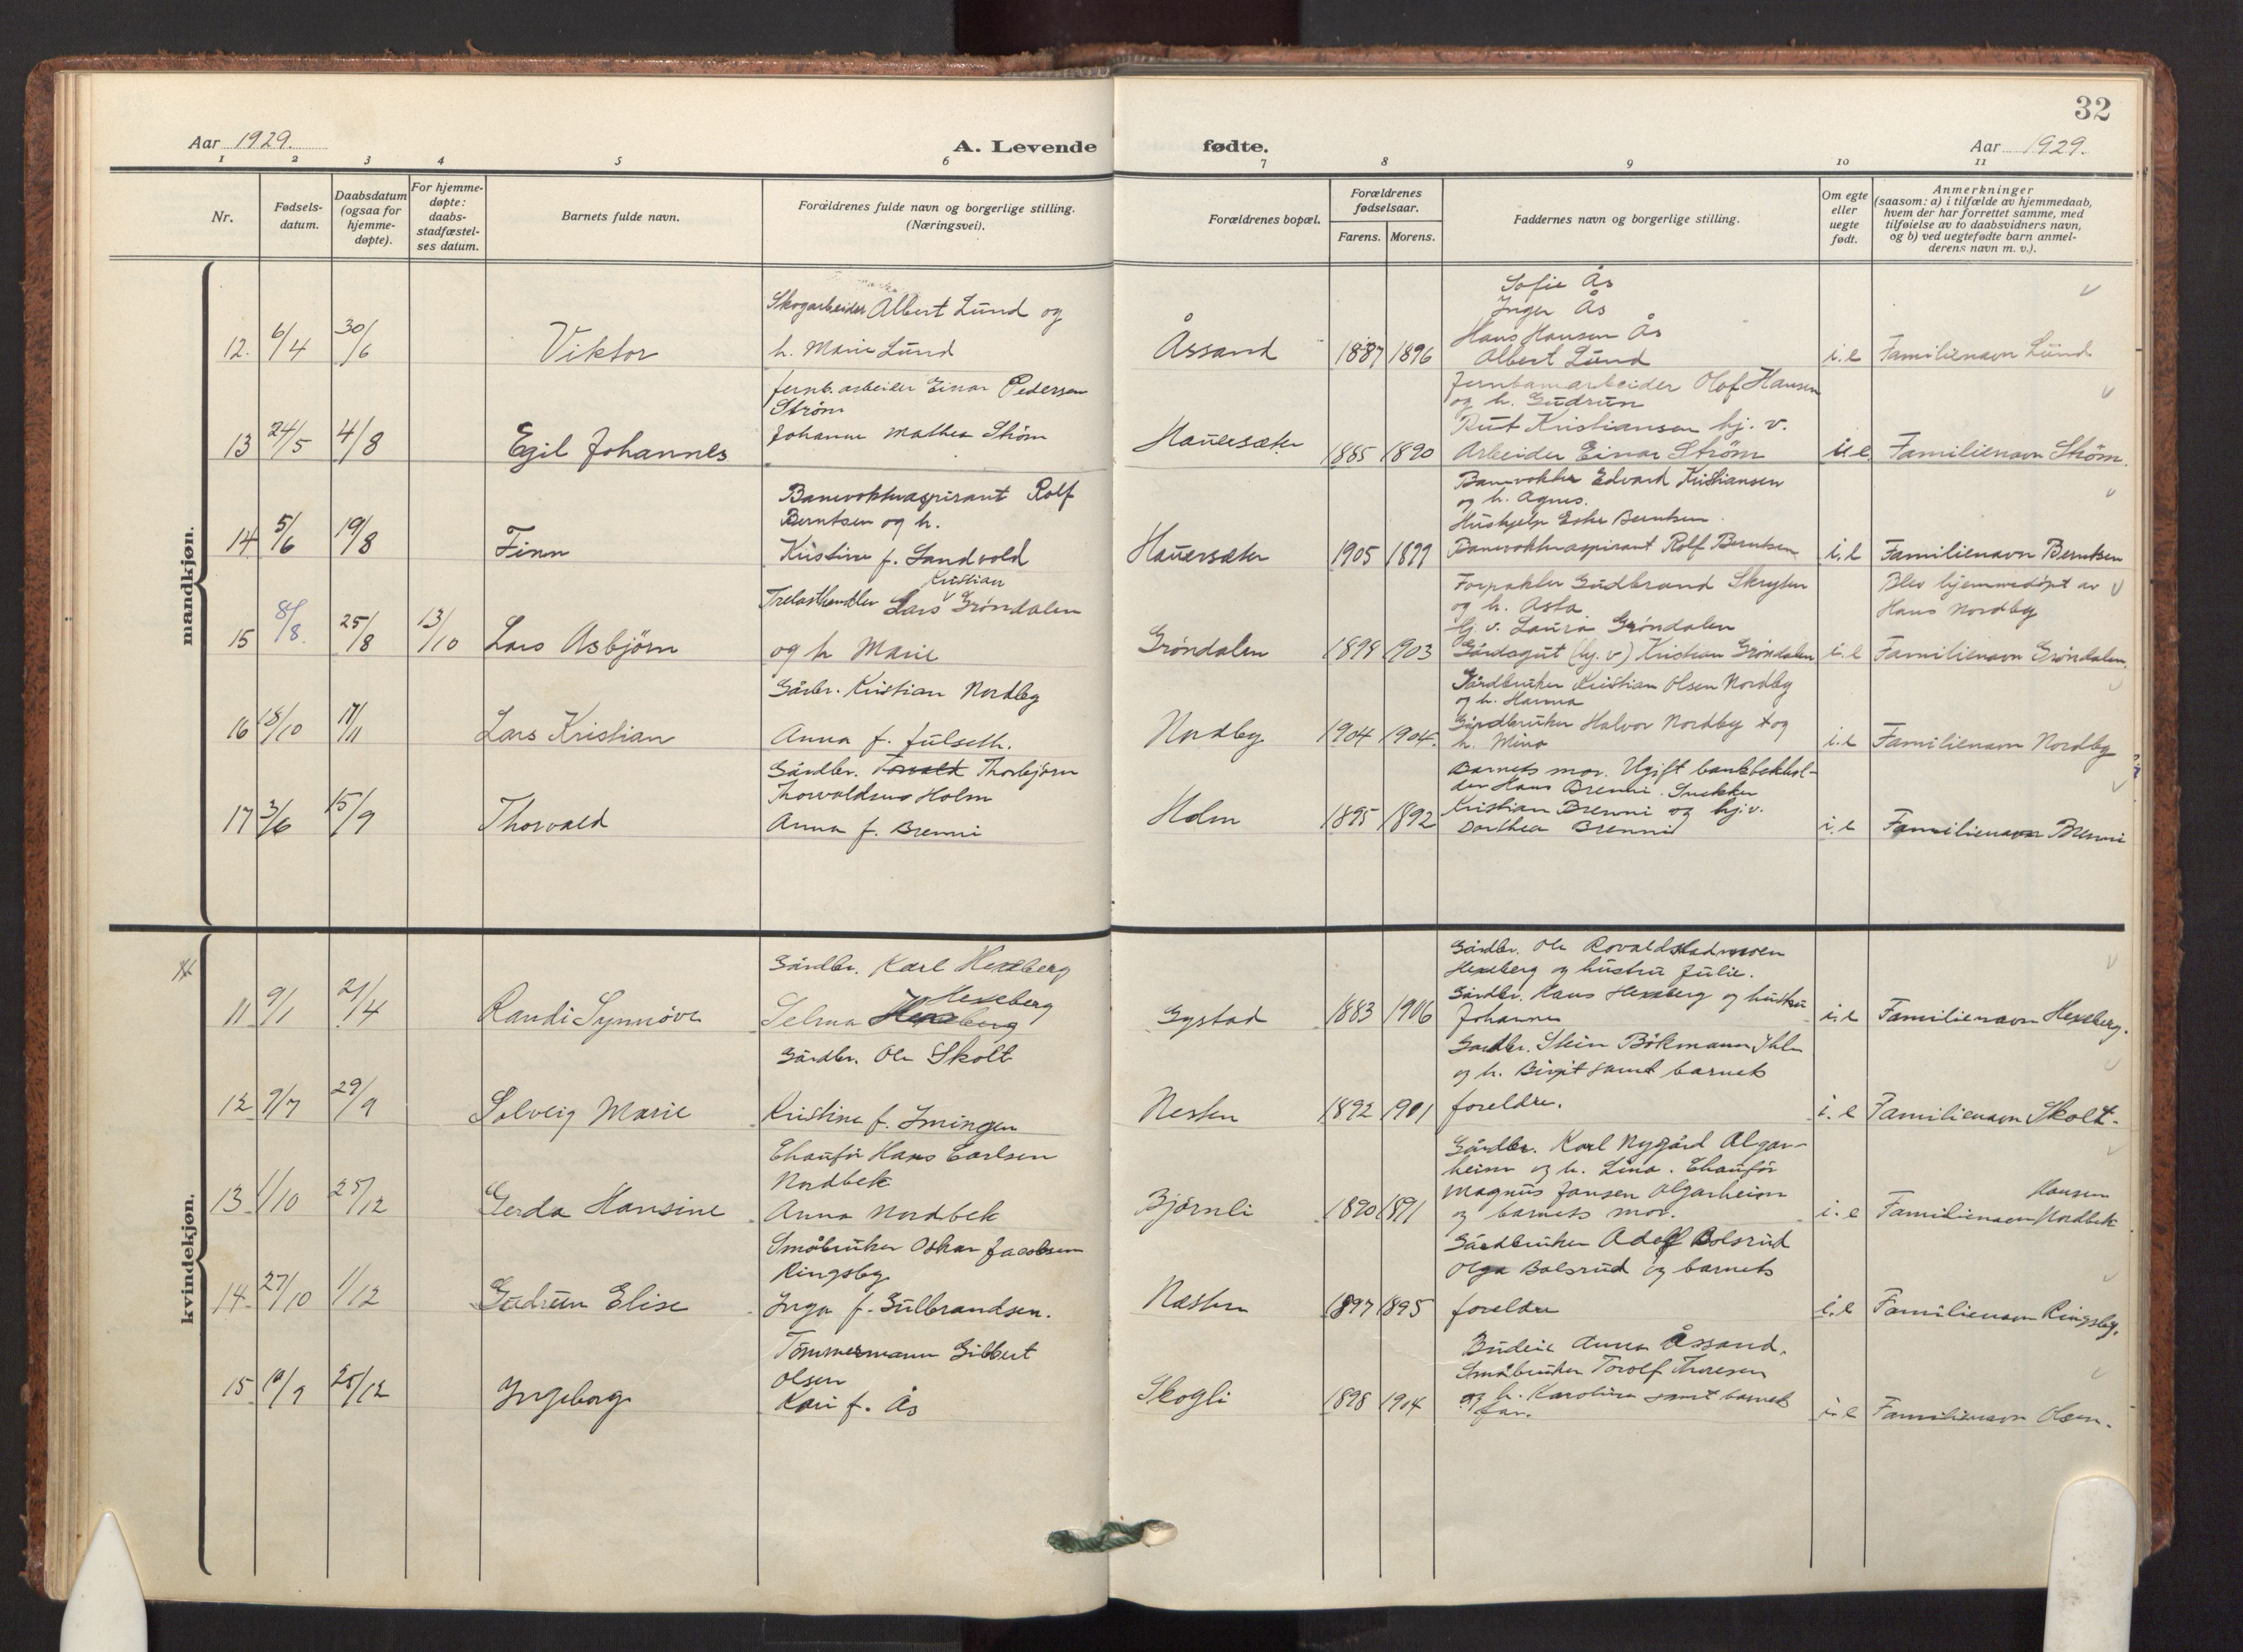 32
Aar 1929.
A. Levende
fødte.
Aar 1929.
1 2 3 4 5 6 7 8 9 10 11
Nr.
Fødsels-
datum.
Daabsdatum
(ogsaa for
hjemme-
døpte).
For hjemme-
døpte:
daabs-
stadfæstel-
ses datum.
Barnets fulde navn.
Forældrenes fulde navn og borgerlige stilling.
(Næringsvei).
Forældrenes bopæl.
Forældrenes
fødselsaar.
Farens. Morens.
Faddernes navn og borgerlige stilling.
Om egte
eller
uegte
født.
Anmerkninger
(saasom: a) i tilfælde av hjemmedaab,
hvem der har forrettet samme, med
tilføielse av to daabsvidners navn,
og b) ved uegtefødte barn anmel-
derens navn m. v.).
mandkjøn.
12. 6/4 30/6 Viktor
Skogarbeider Albert Lund og
h. Marie Lund
Åssand 1887 1896
Sofie Ås
Inger Ås
Hans Hansen Ås
Albert Lund
i.e Familienavn Lund
13 24/5 4/8 Egil Johannes
jernb.arbeider Einar Pedersen
Strøm
Johanne Mathea Strøm
Hauersæter 1885 1890
Jernbanearbeider Olof Hansen
og h. Gudrun
Rut Kristiansen hj. v.
Arbeider Einar Strøm
i.e. Familienavn Strøm.
14 5/6 19/8 Finn
Banevokteraspirant Rolf
Berntsen og h.
Kristine f. Sandvold
Hauersæter 1905 1899
Banevokter Edvard Kristiansen
og h. Agnes.
Hushjelp Berntsen.
Banevokteraspirant Rolf Berntsen
i.e Familienavn Berntsen
15 8/8. 25/8 13/10 Lars Asbjørn
Kristian
Trelasthandler Lars Grøndalen
og h Marie
Grøndalen 1898 1903
Forpakter Gudbrand Skryten
og h. Asta
hj. v. Laura Grøndalen
Gårdsgut (hj. v) Kristian Grøndalen
i.e
Blev hjemmedøpt av
Hans Nordby
Familienavn Grøndalen.
16 18/10 17/11 Lars Kristian
Gårbr. Kristian Nordby
Anna f. Julseth.
Nordby 1904 1904.
Gårdbruker Kristian Olsen Nordby
og h. Hanna
Gårdbruker Halvor Nordby og
h. Mina
i.e Familienavn Nordby
17 3/6 15/9 Thorvald
Gårdbr. Torvald Thorbjørn
Thorvaldsens Holm
Anna f. Brenni
Holm 1895 1892
Barnets mor. Ugift bankbokhol-
der Hans Brenni. Snekker
Kristian Brenni og hj.v.
Dorthea Brenni
i.e Familienavn Brenni
kvindekjøn.
11 9/1 21/4 Randi Synnøve
Gårdbr. Karl Hexeberg
Hexeberg
Selma Hexeberg
Gystad 1883 1906
Gårdbr. Ole Rovaldstadmoen
Hexeberg og hustru Julie.
Gårdbr. Hans Hexeberg og hustru
Johanne
i.e Familienavn Hexeberg.
12 9/7 29/9 Solveig Marie
Gårdbr. Ole Skolt
Kristine f. Imingen
Nesten 1892 1901
Gårdbr. Stein Bökmann Ihle
og h. Birgit samt barnets
foreldre.
i.e Familienavn Skolt.
13 1/10 25/12 Gerda Hansine
Chaufför Hans Carlsen
Nordbek
Anna Nordbek
Björnli 1890 1891
Gårdbr. Karl Nygård Algar-
heim og h. Lina. Chaufför
Magnus Jansen Algarheim
og barnets mor.
i.e
Hansen
Familienavn Nordbek
14. 27/10 1/12 Gudrun Elise
Småbruker Oskar Jacobsen
Ringsby
Inga f. Gulbrandsen.
Næsten 1897 1895
Gårdbruker Adolf Bolsrud
Olga Bolsrud og barnets
foreldre
i.e Familienavn Ringsby.
15 10/9 25/12 Ingeborg
Tømmermann Gilbert
Olsen
Kari f. Ås
Skogli 1898 1904
Budeie Anna Åssand.
Småbruker Torolf Thoresen
og h. Karoline samt barnets
far.
i.e Familienavn Olsen.